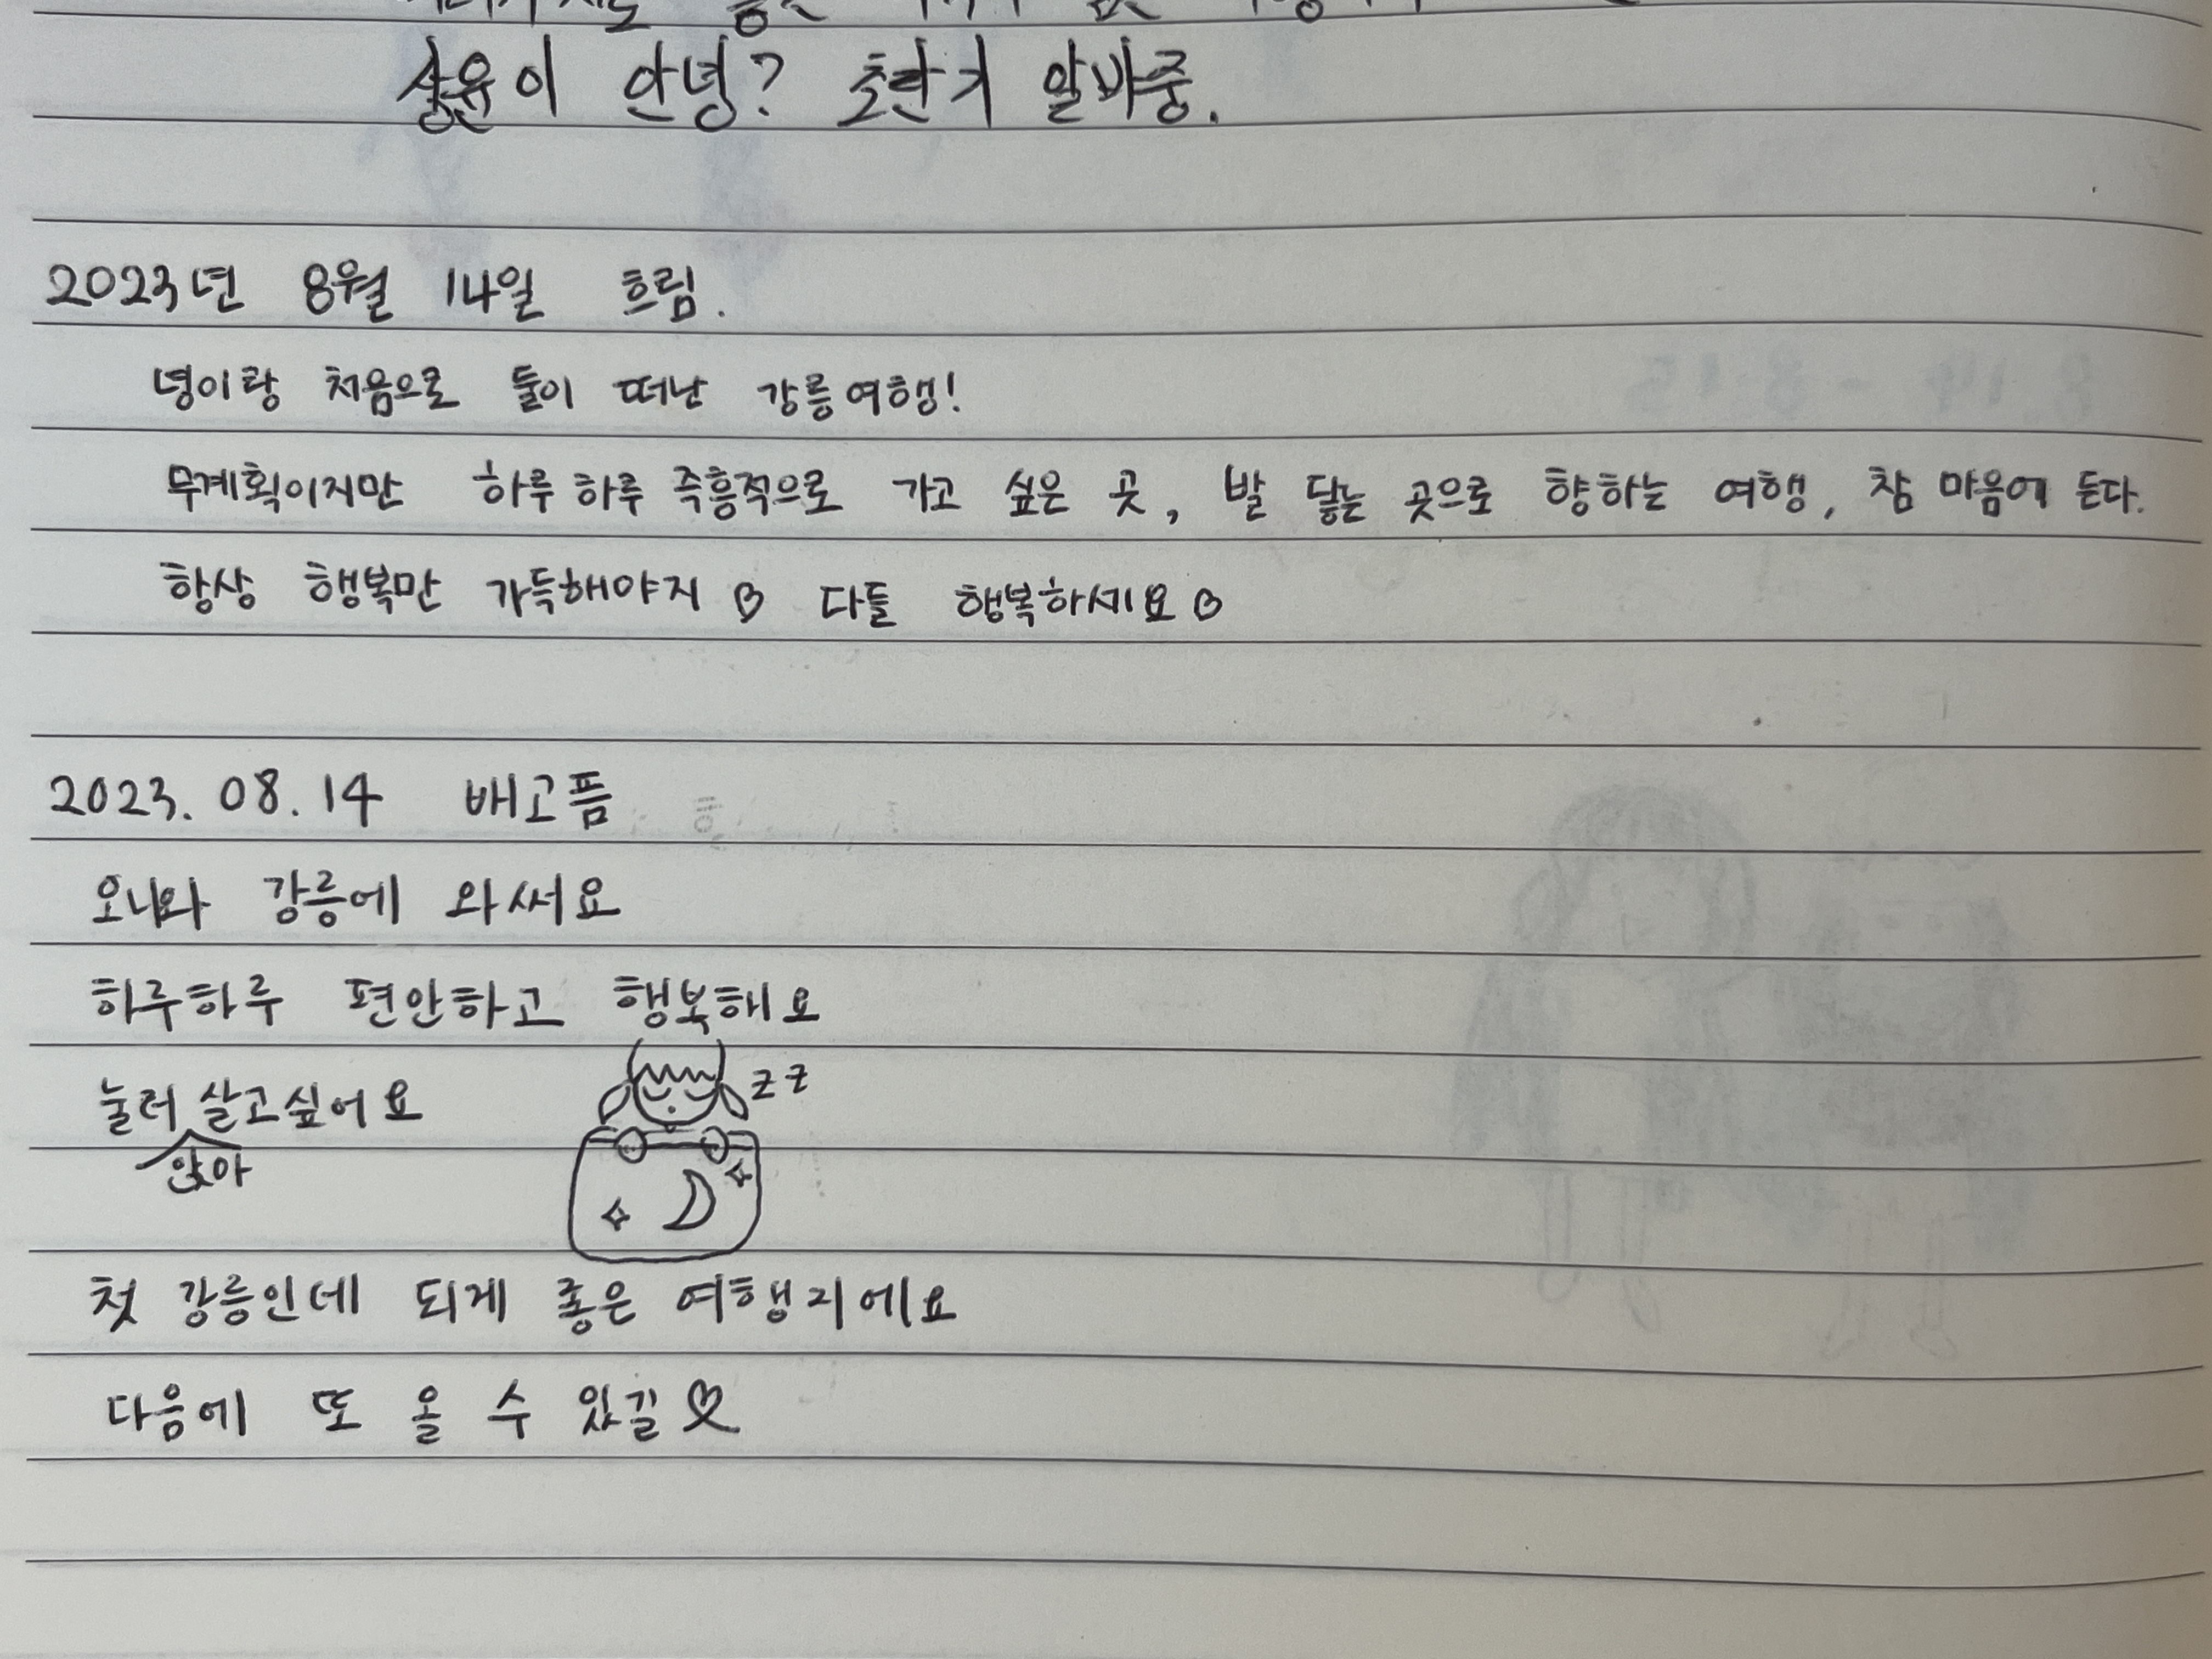 상윤이 안녕? 초단기 알바중.
2023년 8월 14일 흐림.
녕이랑 처음으로 둘이 떠난 강릉여행!
무계획이지만 하루하루 즉흥적으로 가고 싶은 곳, 발 닿는 곳으로 향하는 여행, 참 마음에 든다.
항상 행복만 가득해야지 ♡ 다들 행복하세요 ♡
2023. 08. 14 배고픔
오니와 강릉에 와써요
하루하루 편안하고 행복해요
눌러 살고싶어요
앉아
zz
첫 강릉인데 되게 좋은 여행지에요
다음에 또 올 수 있길 ♡